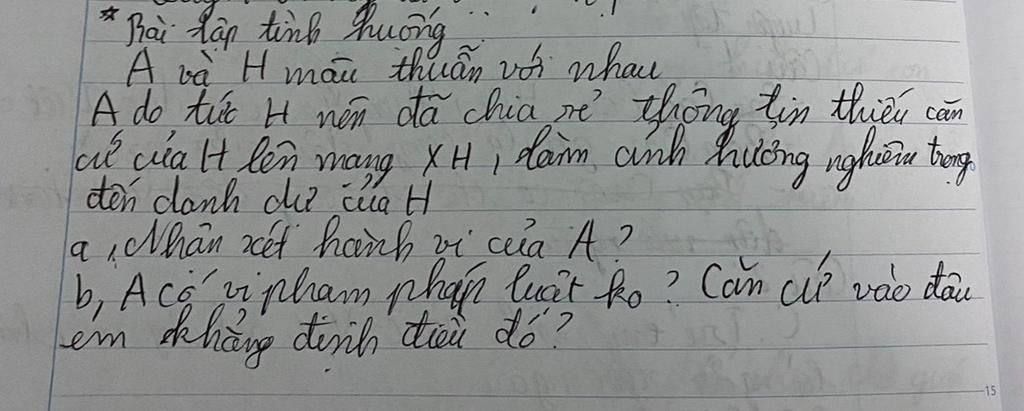 * Bài tập tình huống
A và H mâu thuẫn với nhau
A do tức H nên đã chia sẻ thông tin thiếu căn
cứ của H lên mạng XH, làm ảnh hưởng nghiêm trọng
đến danh dự của H
a, Nhận xét hành vi của A?
b, A có vi phạm pháp luật ko? Căn cứ vào đâu
em khẳng định điều đó?
15